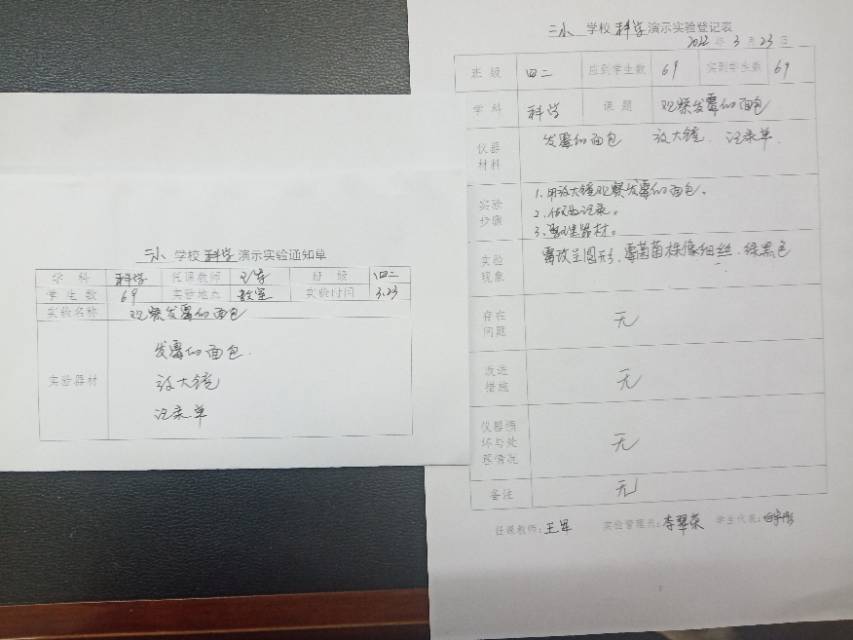 三小 学校 科学 演示实验通知单
学科 科学 任课教师 班级 四二
学生数 69 实验地点 教室 实验时间 3.23
实验名称 观察发霉的面包
实验器材
发霉的面包
放大镜
记录单
三小 学校 科学 演示实验登记表
2022年3月23日
班级 四二 应到学生数 69 实到学生数 69
学科 科学 课题 观察发霉的面包
仪器材料 发霉的面包 放大镜 记录单
实验步骤
1.用放大镜观察发霉的面包。
2.做好记录。
3.整理器材。
实验现象 霉斑呈圆形,霉菌菌株像细丝,绿黑色
存在问题 无
改进措施 无
仪器损坏与处理情况 无
备注 无
任课教师: 王军 实验管理员: 李翠荣 学生代表: